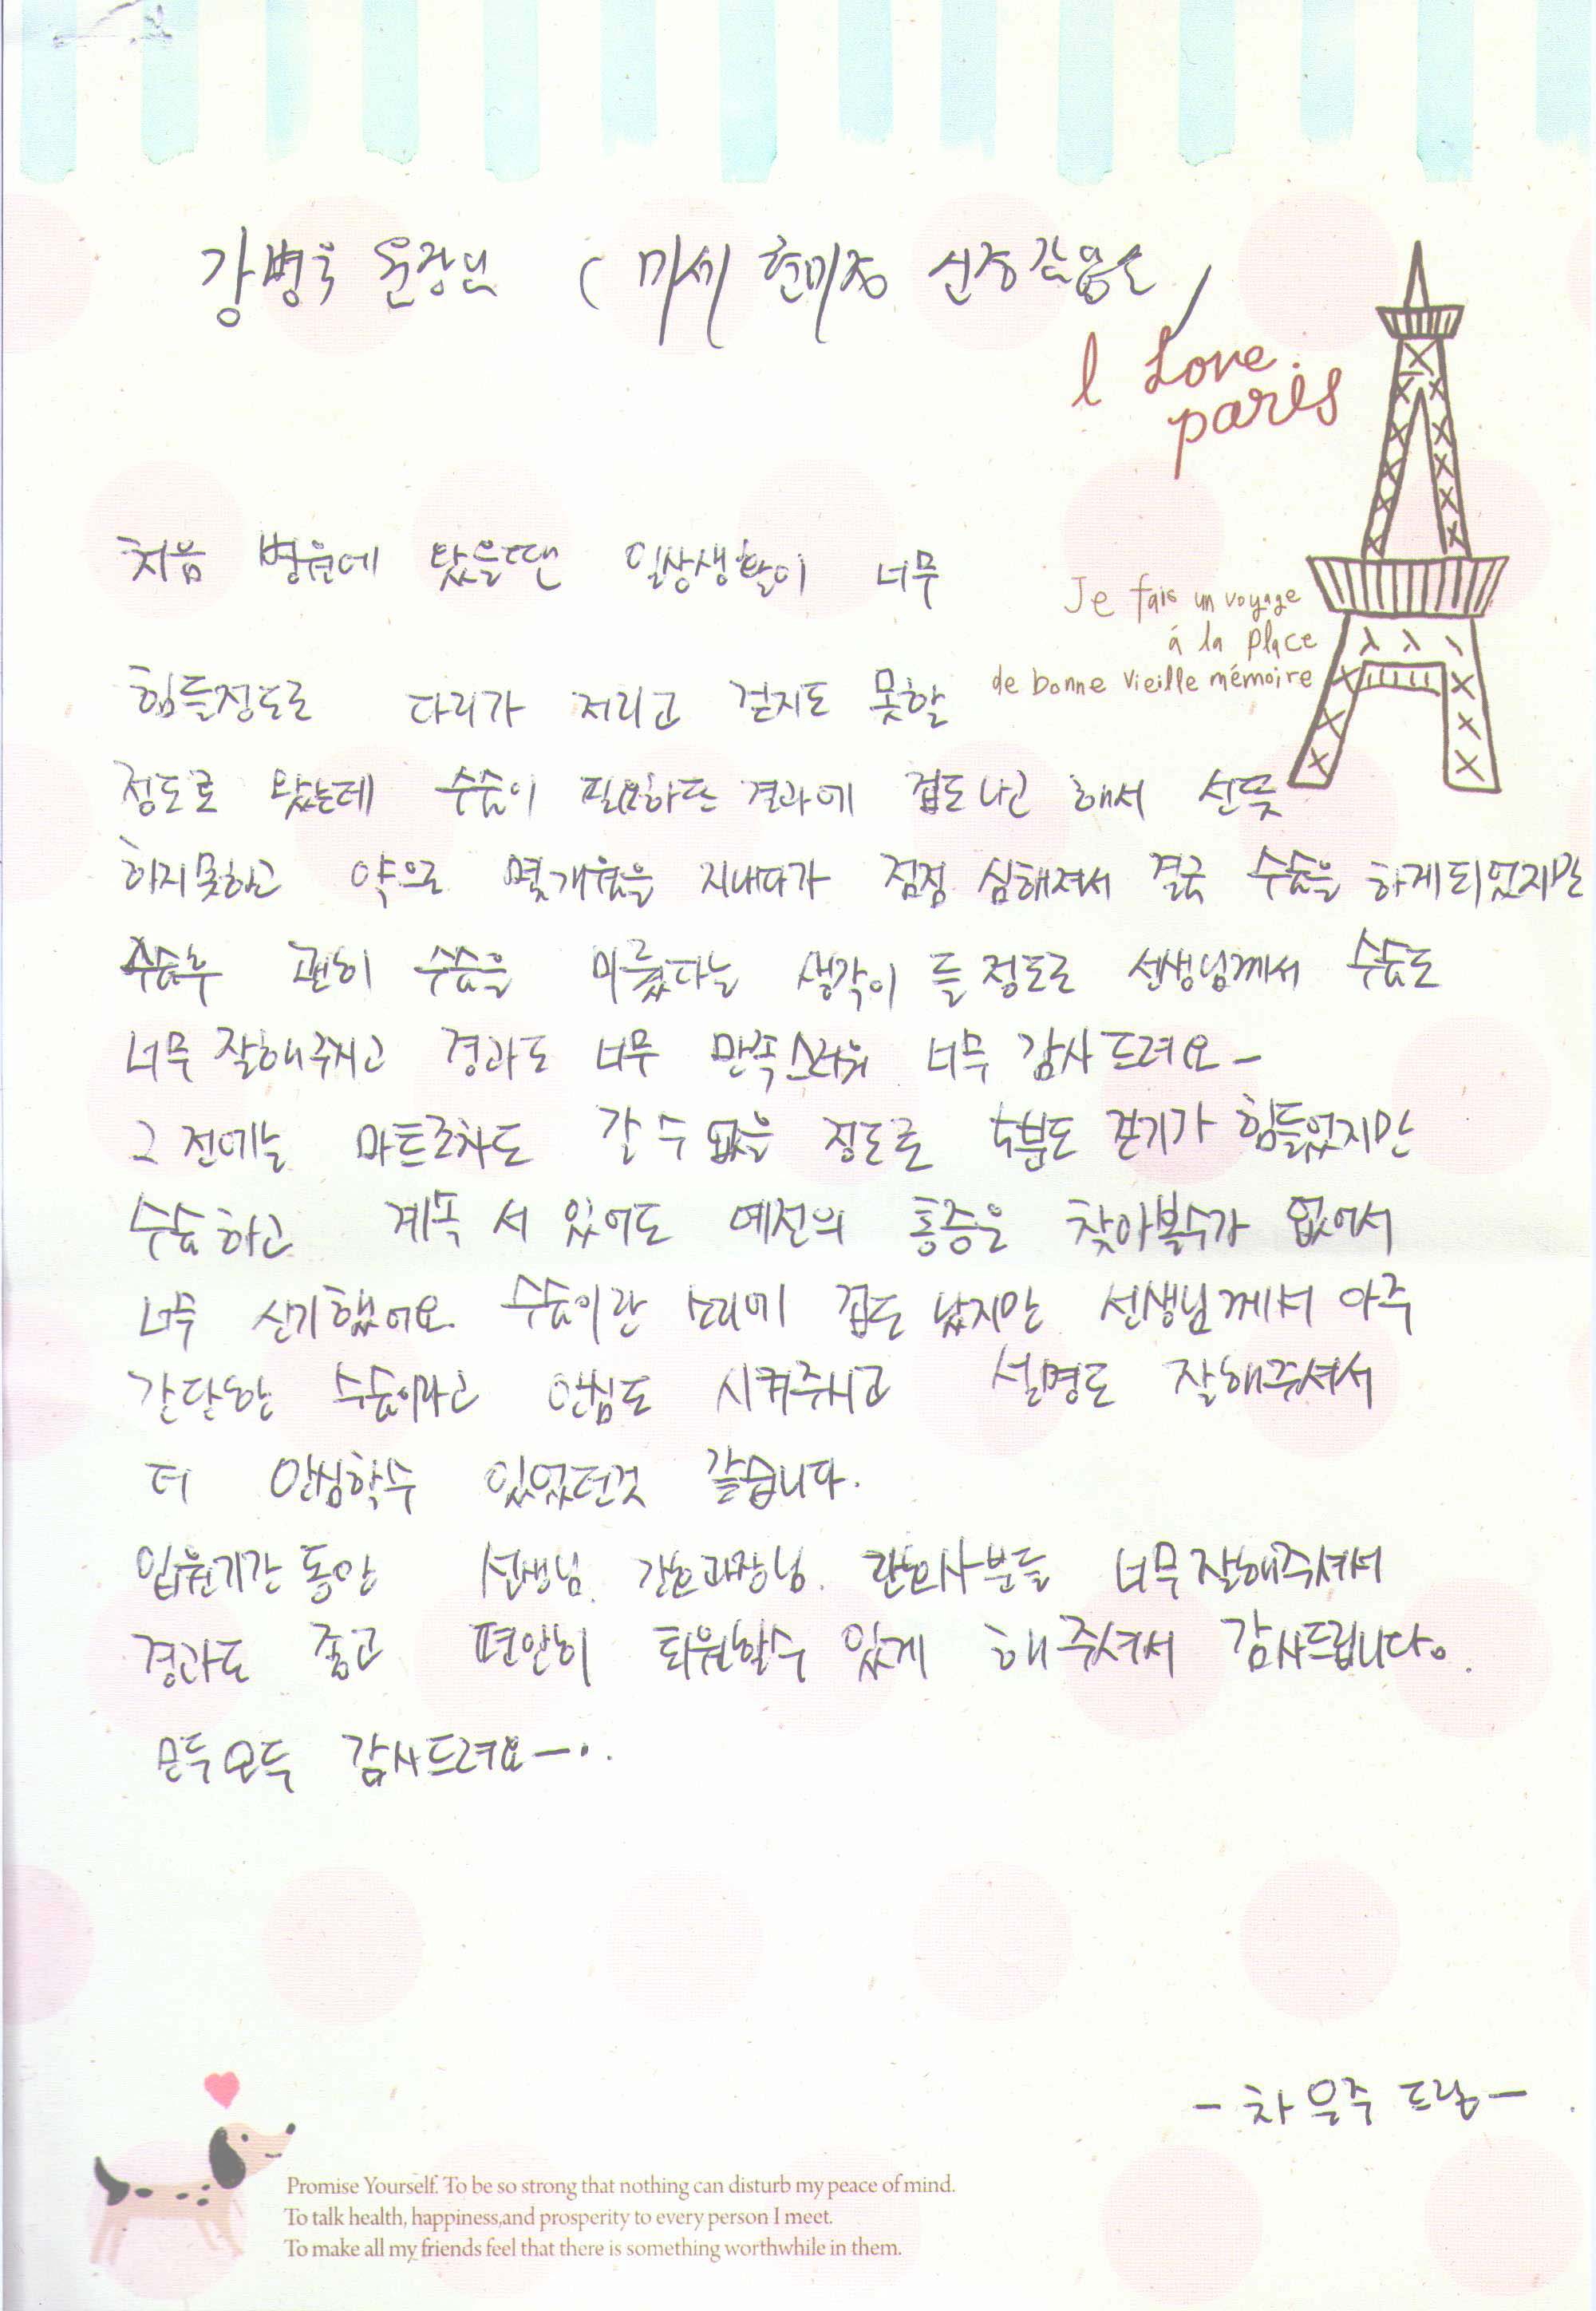 강병욱 원장님 ( 미세 현미경 신경감압술 )
I Love.
paris
처음 병원에 왔을땐 일상생활이 너무
Je fais un voyage
á la place
de bonne vieille mémoire
힘들정도로 다리가 저리고 걷지도 못할
정도로 왔는데 수술이 필요하단 결과에 겁도나고 해서 선뜻
하지못하고 약으로 몇개월을 지내다가 점점 심해져서 결국 수술을 하게되었지만
수술후 괜히 수술을 미뤘다는 생각이 들정도로 선생님께서 수술도
너무 잘해주시고 경과도 너무 만족스러워 너무 감사드려요-
그 전에는 마트조차도 갈 수 없을 정도로 5분도 걷기가 힘들었지만
수술하고 계속 서 있어도 예전의 통증을 찾아볼수가 없어서
너무 신기했어요. 수술이란 소리에 겁도 났지만 선생님께서 아주
간단한 수술이라고 안심도 시켜주시고 설명도 잘해주셔서
더 안심할수 있었던것 같습니다.
입원기간동안 선생님. 간호과장님. 간호사분들 너무잘해주셔서
경과도 좋고 편안히 퇴원할수 있게 해주셔서 감사드립니다.
모두모두 감사드려요-..
- 차은주 드림 -
Promise Yourself. To be so strong that nothing can disturb my peace of mind.
To talk health, happiness,and prosperity to every person I meet.
To make all my friends feel that there is something worthwhile in them.